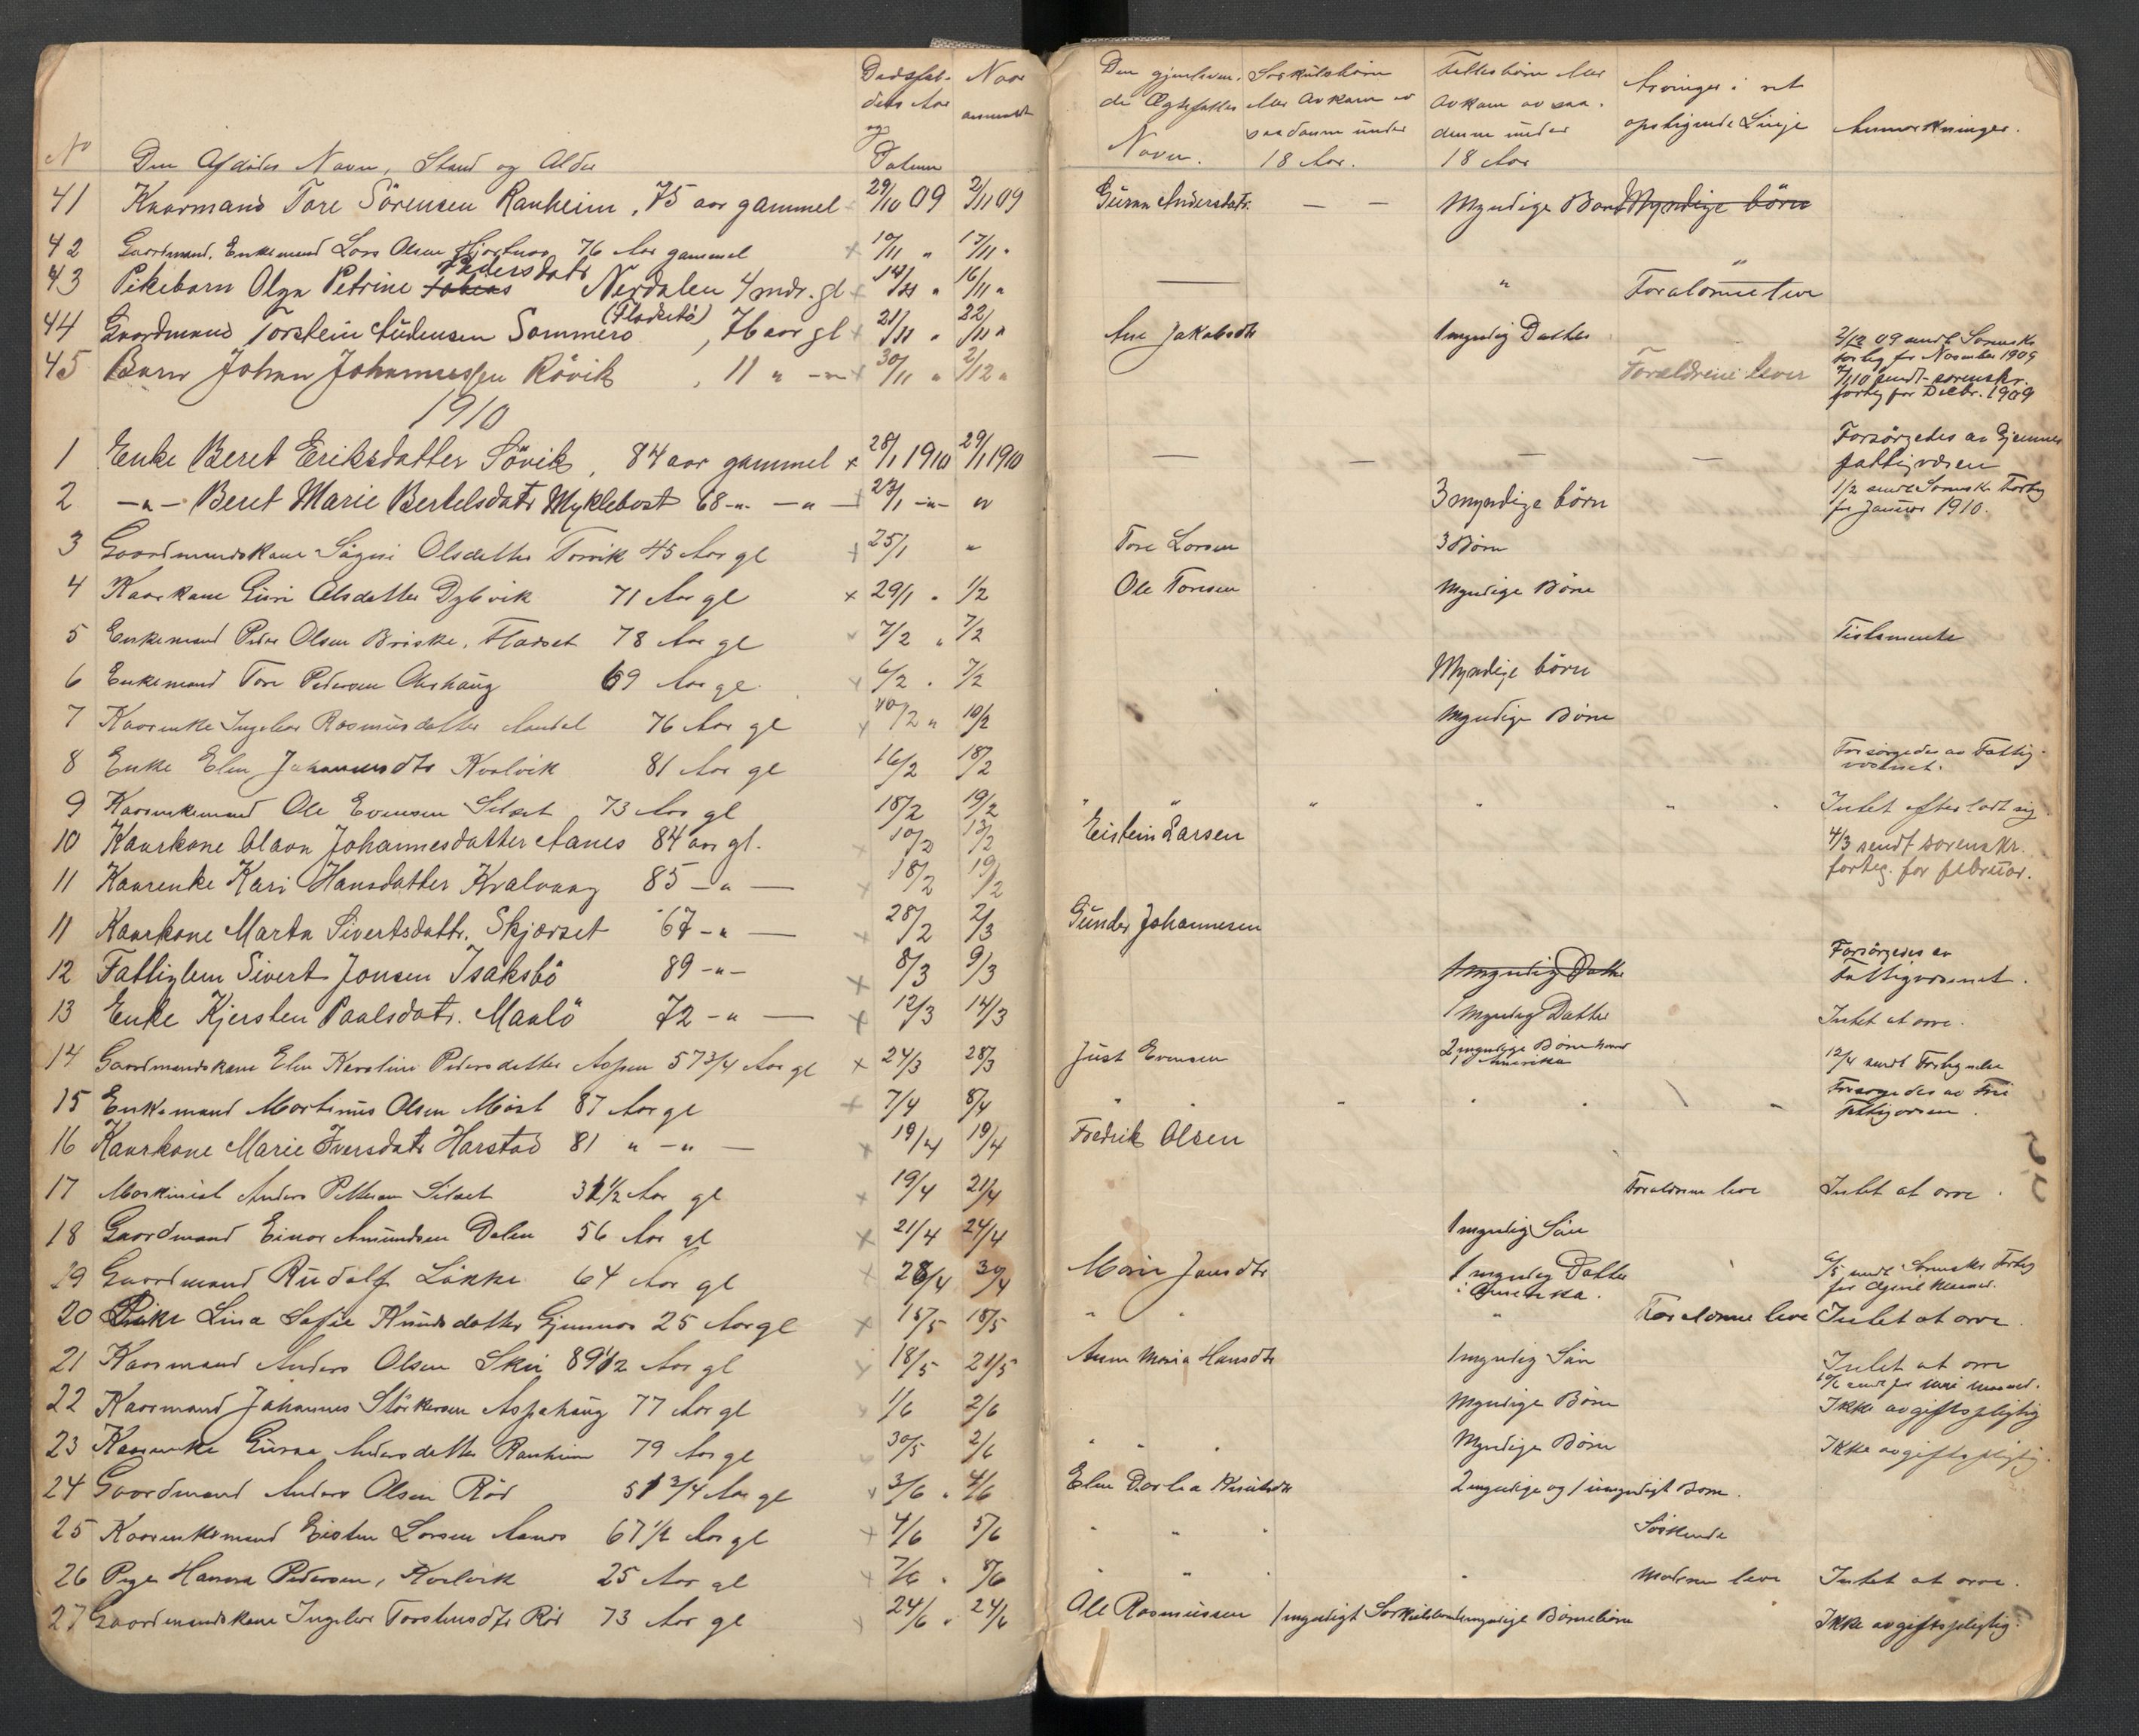 No Den Afdødes Navn, Stand og Alder Dødsfal- dets Aar og Datum Naar anmeldt Den gjenleven- de Ægtefælles Navn. Særkulsbørn eller Avkom av saadanne under 18 Aar. Fellesbørn eller Avkom av saa- danne under 18 Aar Arvinger i ret opstigende Linje Anmerkninger.
41 Kaarmand Tore Sörensen Ranheim, 75 aar gammel 29/10 09 2/11 09 Guran Andersdatr. — — Myndige Barn Myndige börn
42 Gaardmand, Enkemand Lars Olsen 76 Aar gammel × 10/11 " 17/11 "
43 Pikebarn Olga Petrine Tobias Pedersdatr Nerdalen 4 mdr. gl × 14/11 " 16/11 " — " Forældrene leve
44 Gaardmand Torstein Audensen Sommerö (Fladsetö), 76 aar gl × 21/11 " 22/11 " Ane Jakobsdtr 1 myndig Datter 2/12 09 sendt Sorenskr. forteg for November 1909
45 Barn Johan Johannessen Rövik, 11 " — " × 30/11 " 2/12 " Forældrene lever 7/1 10 sendt sorenskr. forteg for Decbr. 1909
1910
1 Enke Beret Eriksdatter Sövik, 84 aar gammel × 28/1 1910 29/1 1910 — — — — Forsörgedes av Gjemnes fattigvæsen
2 — " — Beret Marie Bertelsdatr Myklebost 68 — " — " — 23/1 — " — " 3 myndige börn 1/2 sendt Sorenskr. Forteg for Januar 1910.
3 Gaardmandskone Olsdatter Torvik 45 Aar gl × 25/1 " Tore Larsen 3 Börn
4 Kaarkone Guri Olsdatter Dybvik 71 Aar gl × 29/1 " 1/2 Ole Toresen Myndige Börn
5 Enkemand Peder Olsen Briske, Fladset 78 Aar gl × 7/2 " 7/2 Testamente
6 Enkemand Tore Pedersen Aashaug 69 Aar gl × 6/2 " 7/2 Myndige börn
7 Kaarenke Ingebor Rasmusdatter Aandal 76 Aar gl × 10/2 " 10/2 Myndige Börn
8 Enke Elen Johannesdtr Kvalvik 81 Aar gl 16/2 18/2 Forsørgedes av Fattig- væsenet.
9 Kaarenkemand Ole Evensen Silset 73 Aar gl 18/2 19/2 " " " " " " Intet efterladt sig
10 Kaarkone Olava Johannesdatter Aanes 84 aar gl. × 10/2 13/2 Eistein Larsen 4/3 sendt sorenskr. forteg. for februar.
11 Kaarenke Kari Hansdatter Kvalvaag 85 — " — × 18/2 19/2
11 Kaarkone Marta Sivertsdattr. Skjærset 67 — " — × 28/2 2/3 Gunder Johannesen
12 Fattiglem Sivert Jonsen Isaksbö 89 — " — × 8/3 9/3 1 myndig Datter Forsørgedes av Fattigvæsenet.
13 Enke Kjersten Paalsdatr. Maalö 72 — " — × 12/3 14/3 1 myndig Datter Intet at arve.
14 Gaardmandskone Elen Karoline Pedersdatter Aspen 57 3/4 Aar gl × 24/3 28/3 Just Evensen 2 myndige Börn hvorav 1 Amerika 12/4 sendt Fortegnelse
15 Enkemand Martinus Olsen Möst 87 Aar gl × 7/4 8/4 " " " " " Forsørgedes av Frei fattigvæsen.
16 Kaarkone Marie Iversdatr Harstad 81 " — " — × 19/4 19/4 Fredrik Olsen
17 Maskinist Anders Pettersen Silset 31 1/2 Aar gl × 19/4 21/4 Forældrene leve Intet at arve.
18 Gaardmand Einar Amundsen Dalen 56 Aar gl × 21/4 24/4 1 myndig Sön
19 Gaardmand Rudolf Lökke 64 Aar gl × 28/4 30/4 Marie Jansdtr 1 myndig Datter i Amerika. 6/5 sendt Sorenskr. Forteg for April Maaned.
20 Pike Lina Sofie Knudsdatter Gjemnes 25 Aar gl × 15/5 18/5 " " " Forældrene leve Intet at arve.
21 Kaarmand Anders Olsen Skei 89 1/2 Aar gl × 18/5 21/5 Anne Maria Hansdtr 1 myndig Sön Intet at arve
10/6 sendt for mai maaned.
22 Kaarmand Johannes Störkersen Aspehaug 77 Aar gl × 1/6 2/6 Myndige Börn Ikke avgiftspligtig
23 Kaarenke Guran Andersdatter Ranheim 79 Aar gl 30/5 2/6 " " " Myndige Börn Ikke avgiftspligtig.
24 Gaardmand Anders Olsen Röd 51 3/4 Aar gl × 3/6 " 4/6 Elen Dorthea Knutsdtr 2 myndige og 1 umyndigt Barn.
25 Kaarenkemand Eisten Larsen Aanes 67 1/2 Aar gl × 4/6 5/6 " " " Söskende
26 Pige Hanna Pedersen, Kvalvik 25 Aar gl × 7/6 " 8/6 " " " " Moderen leve Intet at arve.
27 Gaardmandskone Ingebor Torstensdtr Röd 73 Aar gl × 24/6 " 24/6 Ole Rasmussen 1 myndigt Særkulsbarn myndige Börnebörn Ikke avgiftspligtig.